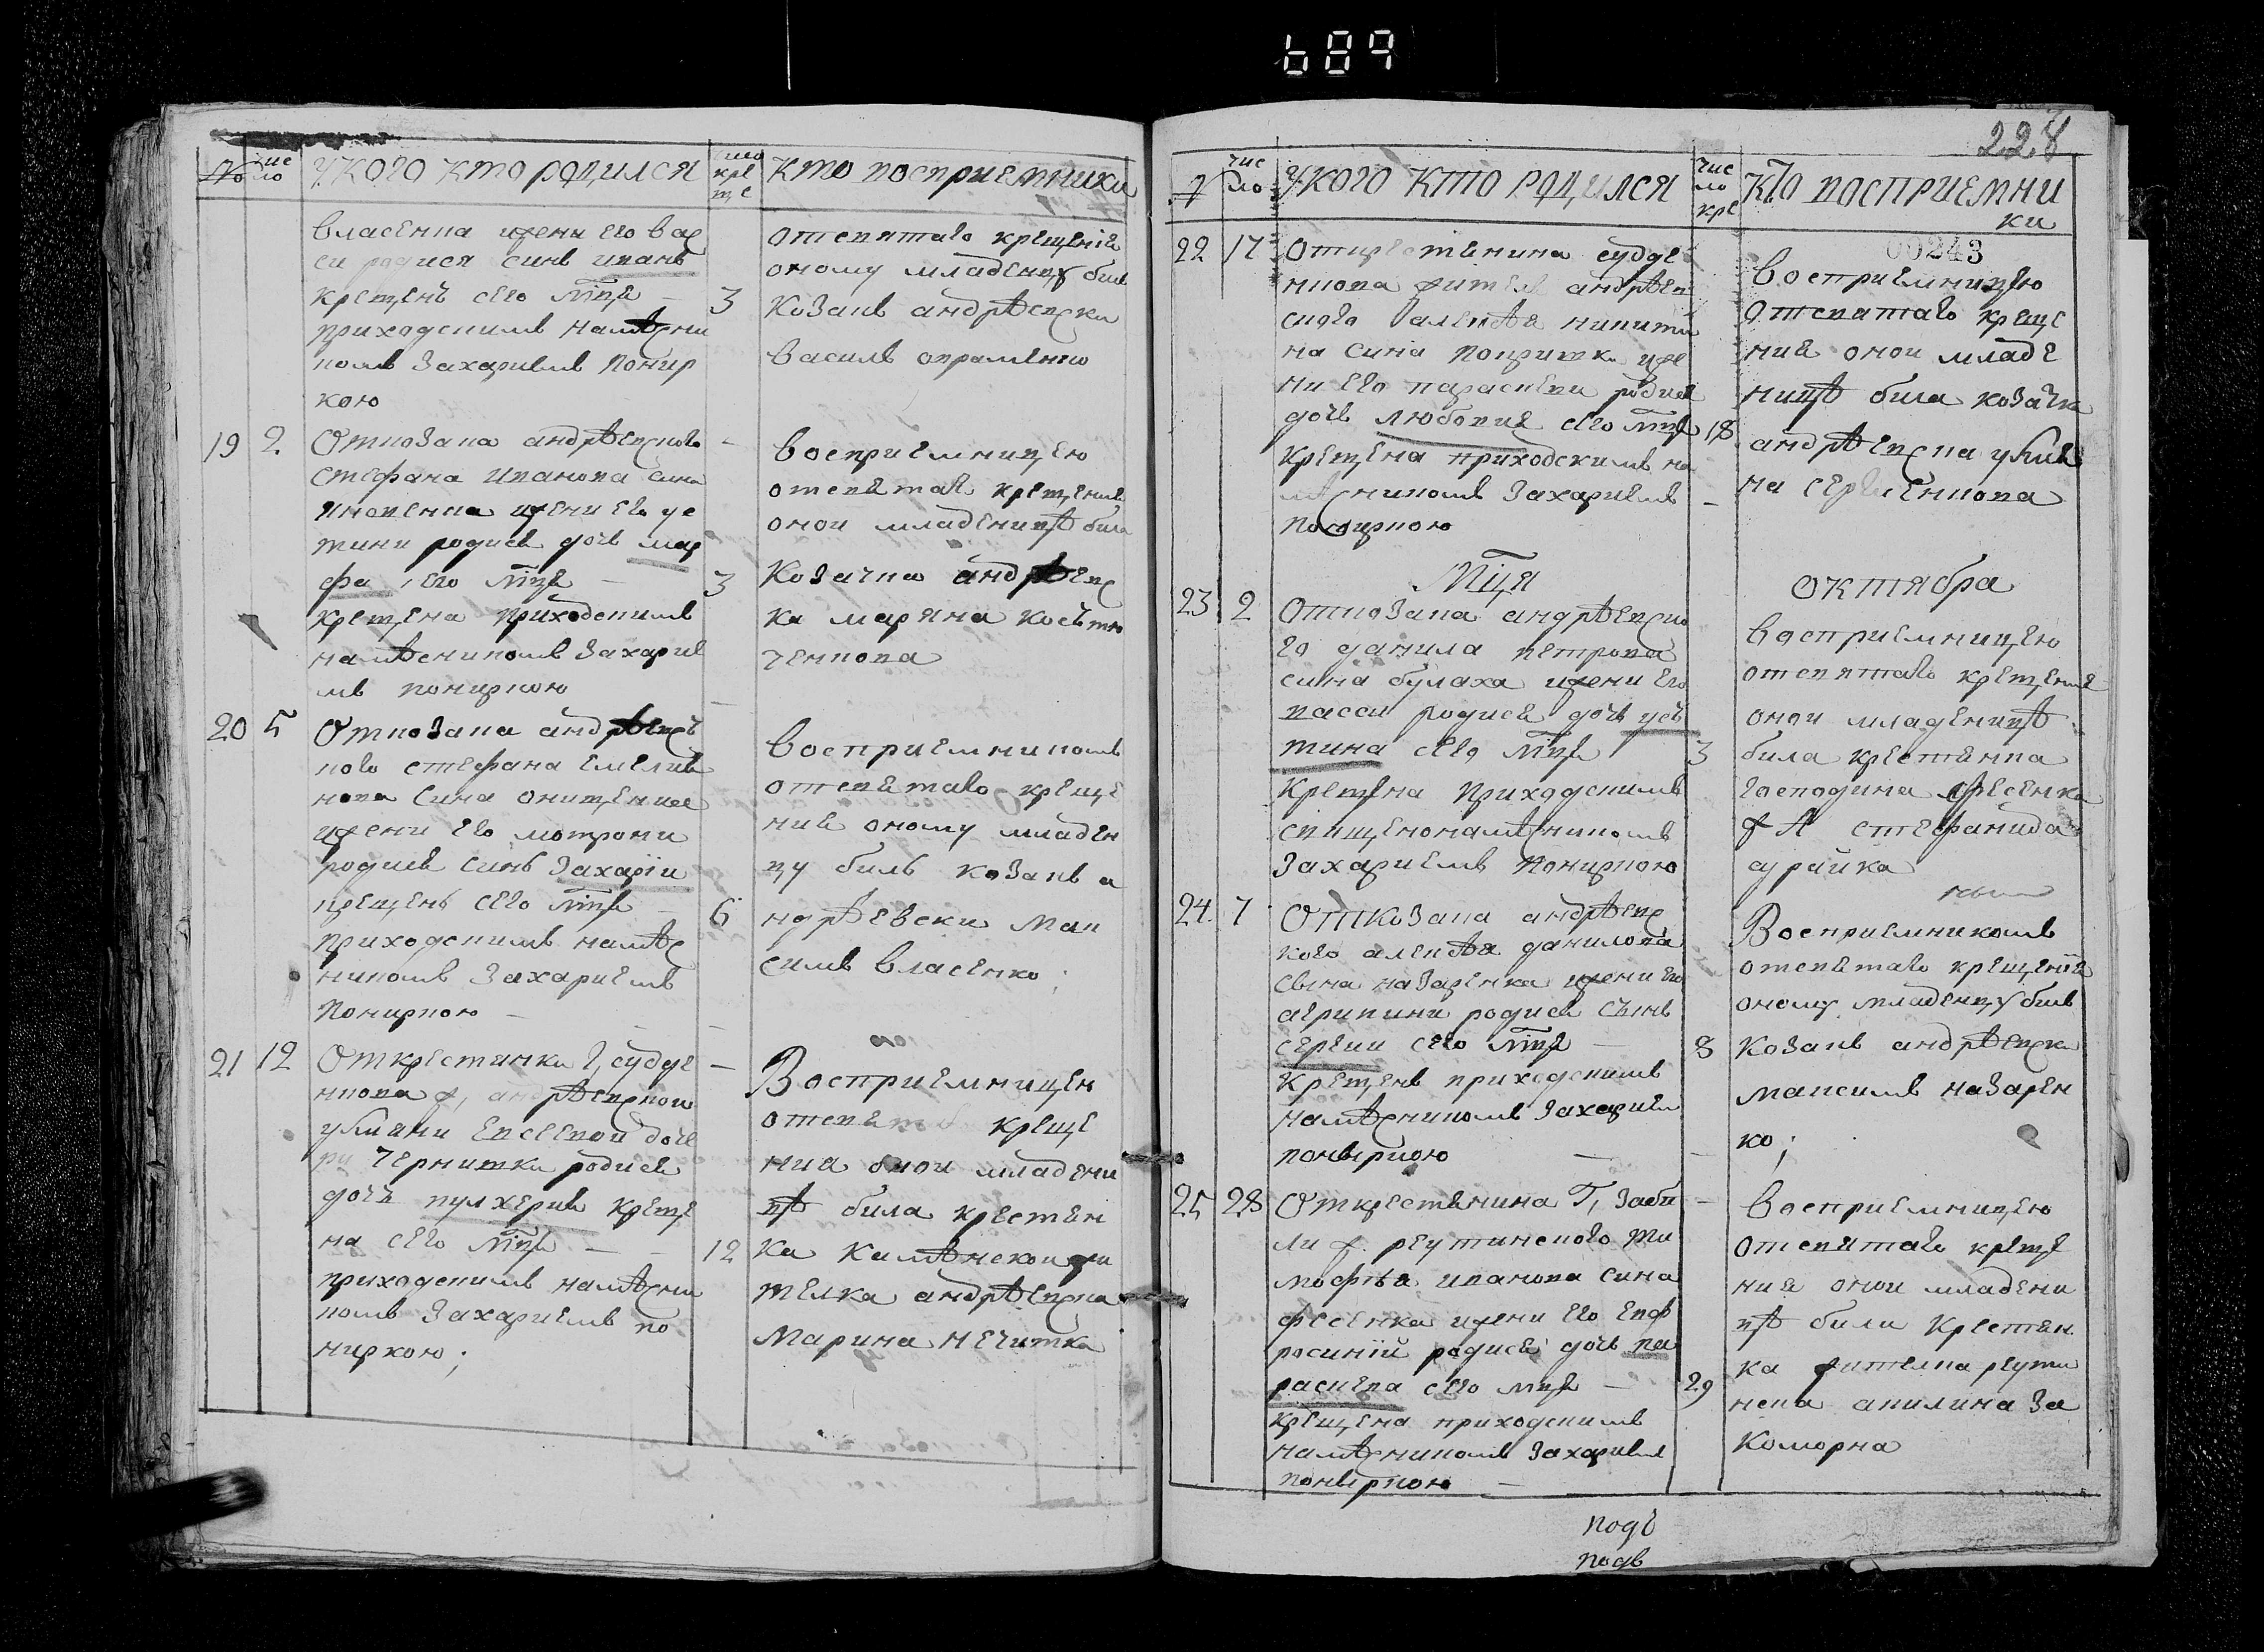 689
№
чис
ло
У КОГО КТО РОДИЛСЯ
число
кре
ще
КТО ВОСПРИЕМНИКИ
власенка жени его вас
си родися синъ иванъ
крещенъ сего мца 3
приходскимъ намѣсни
комъ Захариемъ Понир
кою
отсвятаго крещенія
оному младенцу билъ
Козакъ андрѣевски
василь авраменко
19 2
Откозака андрѣевского
стефана Иванова сина
жени его ус
тини родися дочъ мар
фа сего мца 3
крещена приходскимъ
намѣсникомъ Захарие
мъ пониркою
восприемницею
отсвятаго крещения
оной младеницѣ била
Козачка андрѣевс
ка маряна косътю
ченкова
20 5
Откозака андрѣевсъ
кого стефана емелия
нова сина онищенка
жени его мотрони
родися синъ Захарій
крещенъ сего мца 6
приходскимъ намѣс
никомъ Захариемъ
Пониркою
восприемникомъ
отсвятаго креще
ния оному младен
цу билъ козакъ а
ндрѣевски мак
симъ власенко;
21 12
Открестянки Г, судие
нкова ж, андрѣевской
улияни евсеевой доче
ри Чернишки родися
дочъ пулхерия креще
на сего мца 12
приходскимъ намѣсни
комъ Захариемъ по
ниркою;
Восприемницею
отсвятаго креще
ния оной младени
цѣ била крестян
ка Камѣнской жи
телка андрѣевска
Марина нечитка
228
00243
№
чис
ло
У КОГО КТО РОДИЛСЯ
чис
ло
кре
КТО ВОСПРИЕМНИ
КИ
22 17
Открестянина судие
нкова жителя андрѣев
ского алексѣя никити
на сина жe
ни его параскеви родися
дочъ любовия сего мца 18
крещена приходскимъ на
мѣсникомъ Захариемъ
Пониркою
восприемницею
отсвятаго креще
ния оной младе
ницѣ била козачка
андрѣевска улия
на сергиенкова
Мця октября
23 2
Откозака андрѣевско
го данила петрова
сина булаха жени его
васси родися дочъ усъ
тина сего мца 3
крещена приходскимъ
священонамѣсникомъ
Захариемъ Пониркою
восприемницею
отсвятаго крещения
оной младеницѣ
била крестянка
господина фесенка
ж А стефанида
сурайка
24 7
Откозака андрѣевс
кого алексѣя данилова
сына назаренка жени его
агрипини родися сынъ
сергий сего мца 8
крещенъ приходскимъ
намѣсникомъ Захарием
поныркою
Восприемникомъ
отсвятаго крещения
оному младенцу билъ
Козакъ андрѣевски
максимъ назарен
ко;
25 28
Открестянина Г, Заби
ли ж. реутинского ти
мофѣя иванова сина
фесенка жени его евф
росиніи родися дочъ па
раскева сего мца 29
крещена приходскимъ
намѣсникомъ Захарием
поныркою
восприемницею
отсвятаго креще
ния оной младени
цѣ била крестян
ка жителка реути
нска акилина За
коморна
подъ
подъ